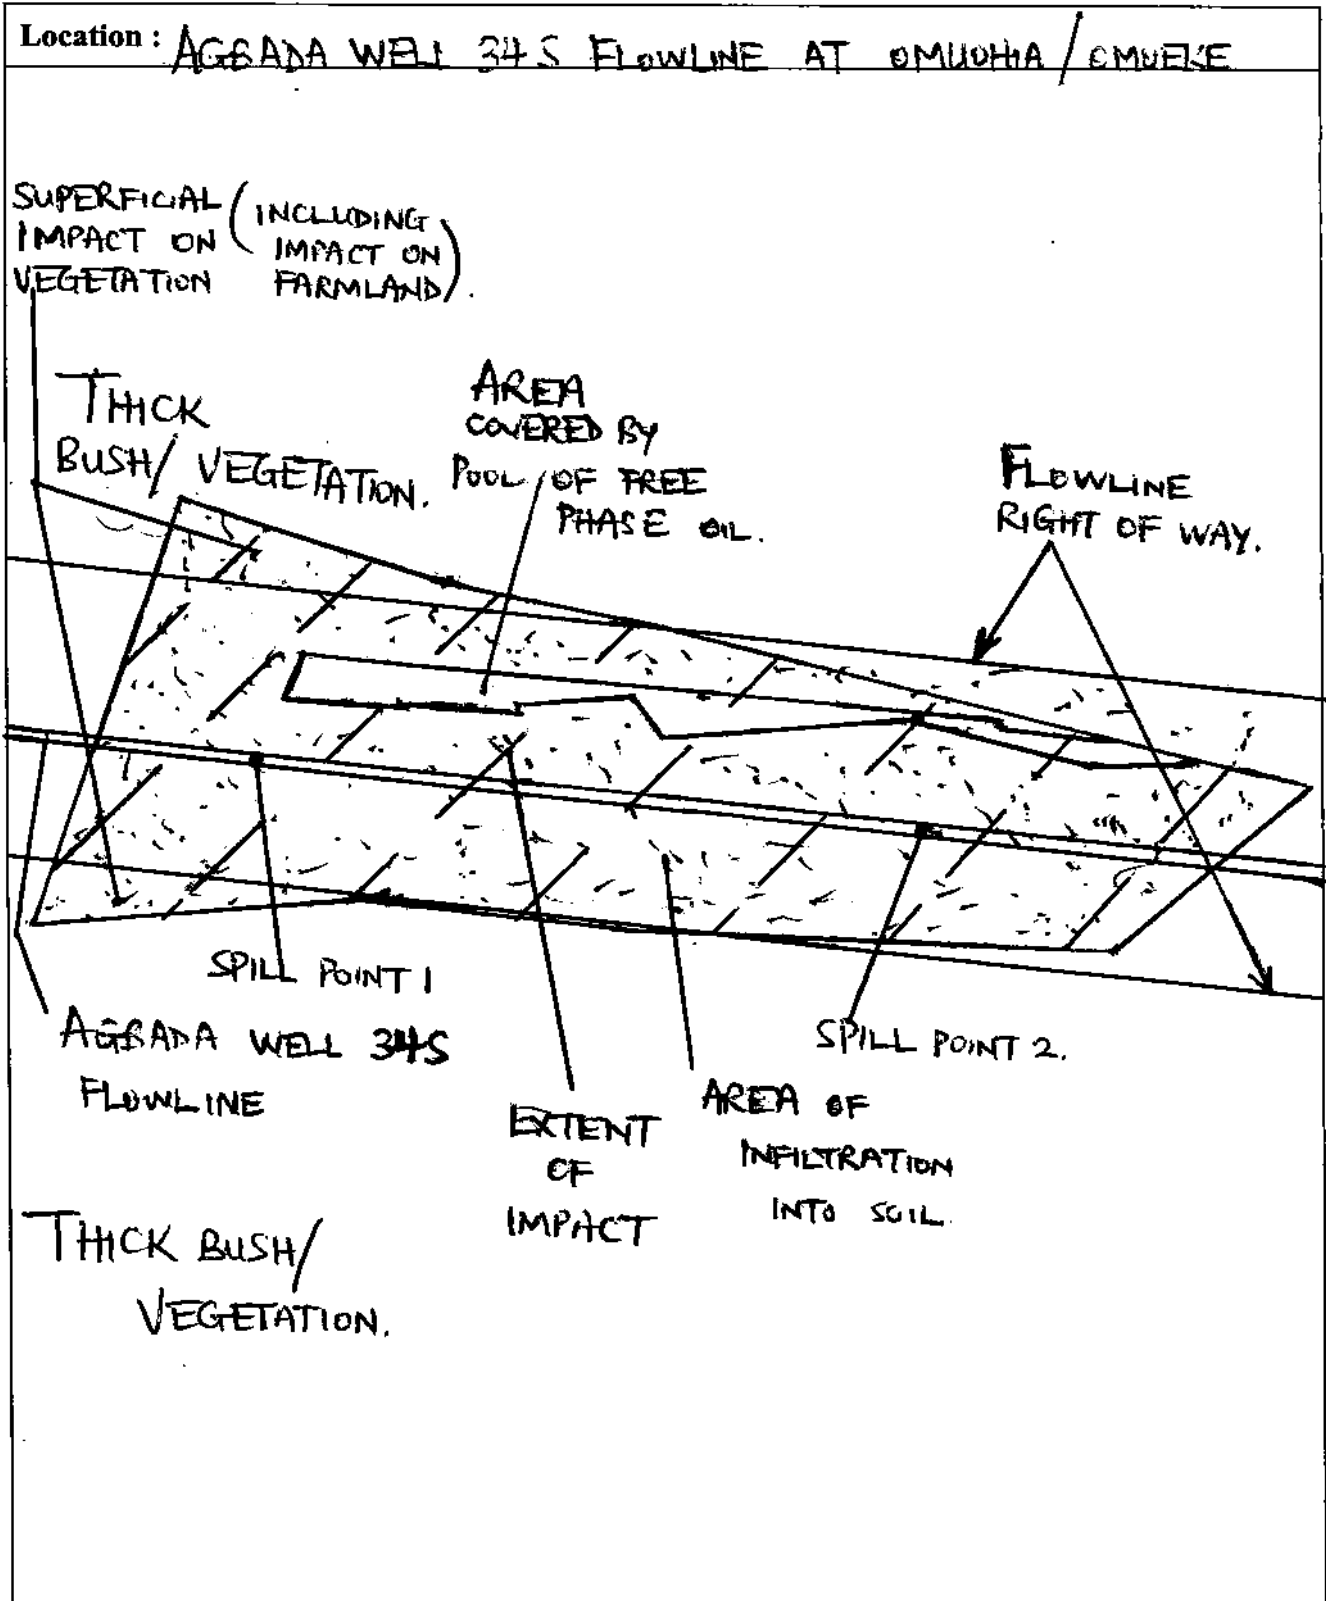 Location : AGBADA WELL 34 S FLOWLINE AT OMUOHIA / OMUEKE
SUPERFICIAL
IMPACT ON
VEGETATION
(INCLUDING
IMPACT ON
FARMLAND).
THICK
BUSH/ VEGETATION.
AREA
COVERED BY
POOL OF FREE
PHASE OIL.
FLOWLINE
RIGHT OF WAY.
SPILL POINT 1
AGBADA WELL 34S
FLOWLINE
SPILL POINT 2.
EXTENT
OF
IMPACT
AREA OF
INFILTRATION
INTO SOIL.
THICK BUSH/
VEGETATION.